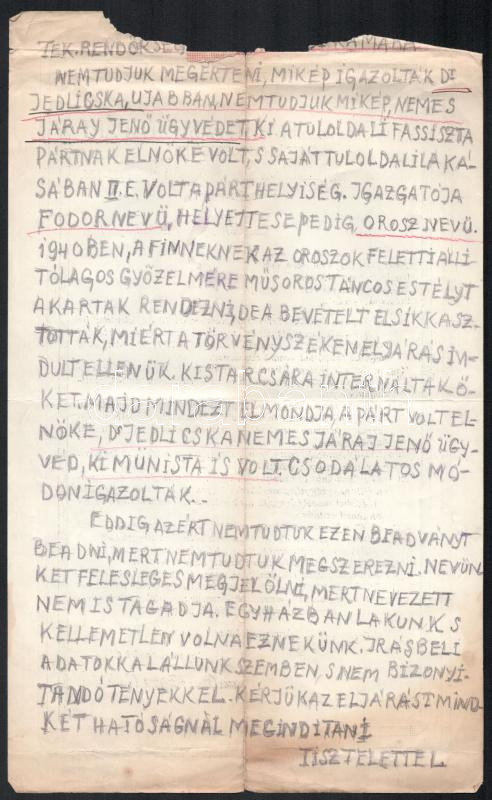 TEK. RENDŐRSÉG
NEM TUDJUK MEGÉRTENI, MIKÉP IGAZOLTÁK Dr
JEDLICSKA, UJABBAN, NEM TUDJUK MIKÉP, NEMES
JÁRAY JENŐ ÜGYVÉDET, KI A TULOLDALI FASSISZTA
PÁRTNAK ELNÖKE VOLT, S SAJÁT TULOLDALI LAKÁ-
SÁBAN II. E. VOLT A PÁRTHELYISÉG. IGAZGATÓJA
FODOR NEVŰ, HELYETTESE PEDIG, OROSZ NEVŰ.
1940 BEN, A FINNEKNEK AZ OROSZOK FELETTI ÁLLI
TÓLAGOS GYŐZELMÉRE MŰSOROS TÁNCOS ESTÉLYT
AKARTAK RENDEZNI, DE A BEVÉTELT ELSIKKASZ-
TOTTÁK, MIÉRT A TÖRVÉNYSZÉKEN ELJÁRÁS IN-
DULT ELLENÜK. KISTARCSÁRA INTERNÁLTÁK Ő-
KET. MAJD MINDEZT ELMONDJA A PÁRT VOLT EL-
NÖKE, Dr JEDLICSKA NEMES JÁRAJ JENŐ ÜGY-
VÉD, KI MÜNISTA IS VOLT. CSODÁLATOS MÓ-
DON IGAZOLTÁK.
EDDIG AZÉRT NEM TUDTUK EZEN BEADVÁNYT
BEADNI, MERT NEM TUDTUK MEGSZEREZNI. NEVÜN
KET FELESLEGES MEGJELÖLNI, MERT NEVEZETT
NEM IS TAGADJA. EGY HÁZBAN LAKUNK S
KELLEMETLEN VOLNA EZ NEKÜNK. IRÁSBELI
ADATOKKAL ÁLLUNK SZEMBEN, S NEM BIZONYI-
TANDÓ TÉNYEKKEL. KÉRJÜK AZ ELJÁRÁST MIND-
KÉT HATÓSÁGNÁL MEGINDITANI
TISZTELETTEL